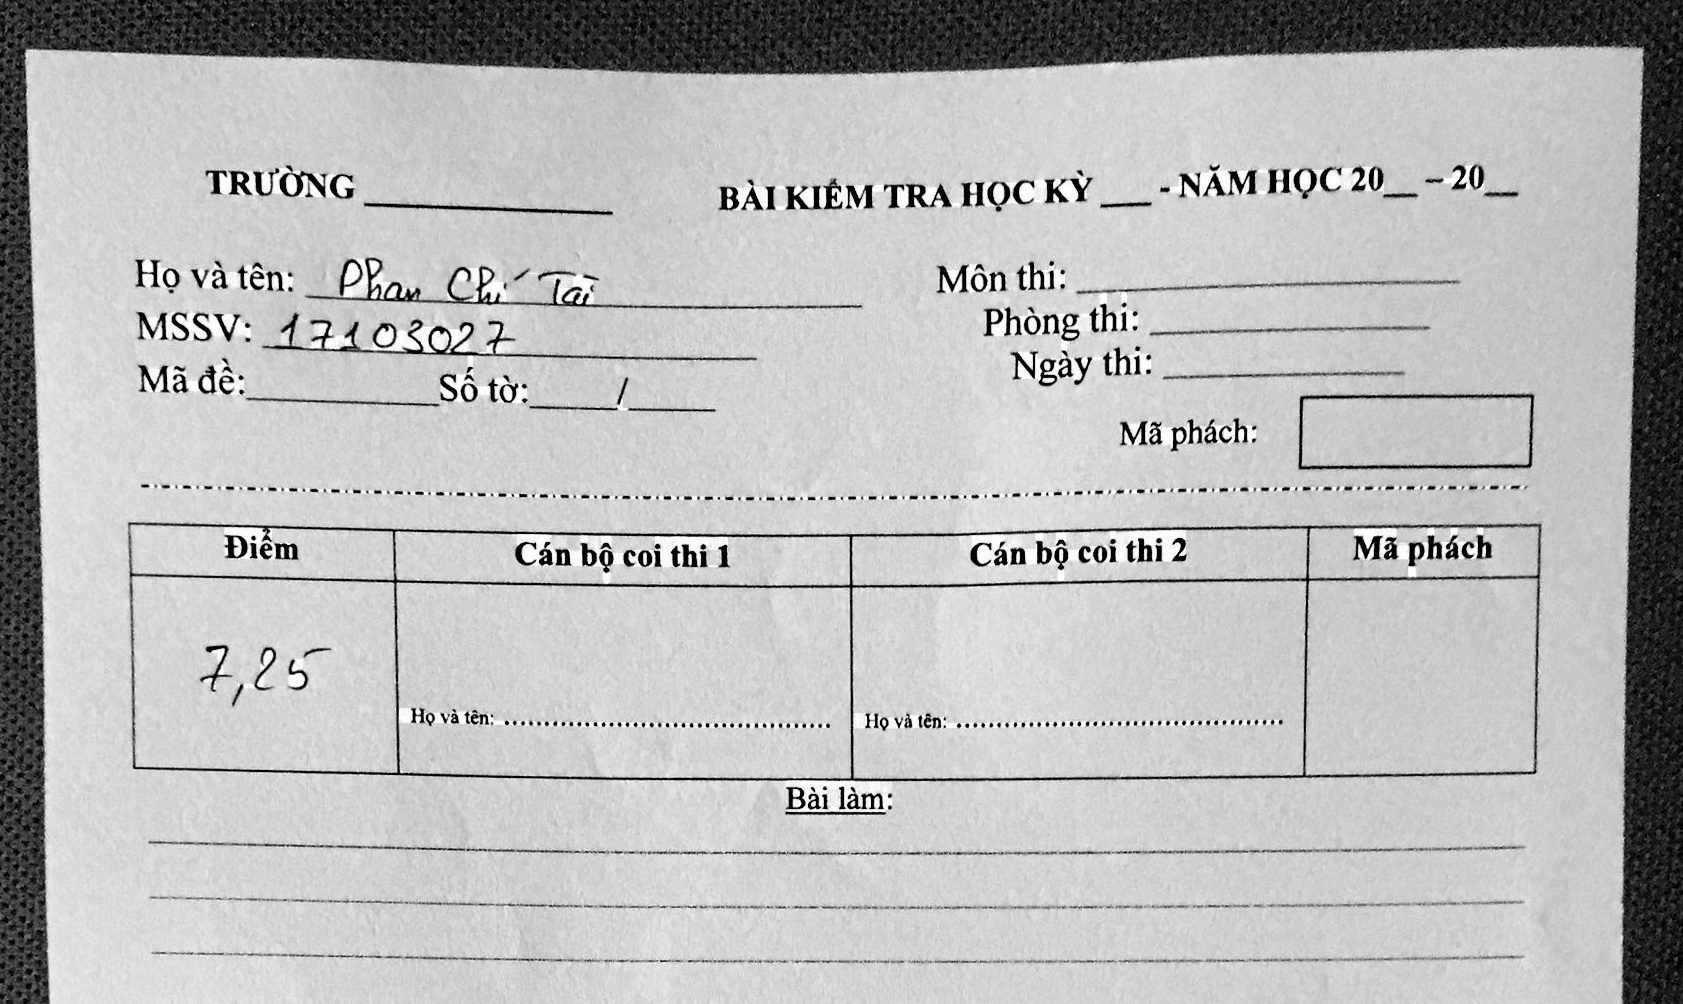 TRƯỜNG ____________ BÀI KIỂM TRA HỌC KỲ ___ - NĂM HỌC 20__ – 20__
Họ và tên: Phan Chí Tài Môn thi:
MSSV: 17103027 Phòng thi:
Mã đề: Số tờ: / Ngày thi:
Mã phách:
Điểm Cán bộ coi thi 1 Cán bộ coi thi 2 Mã phách
7,25
Họ và tên: Họ và tên:
Bài làm: